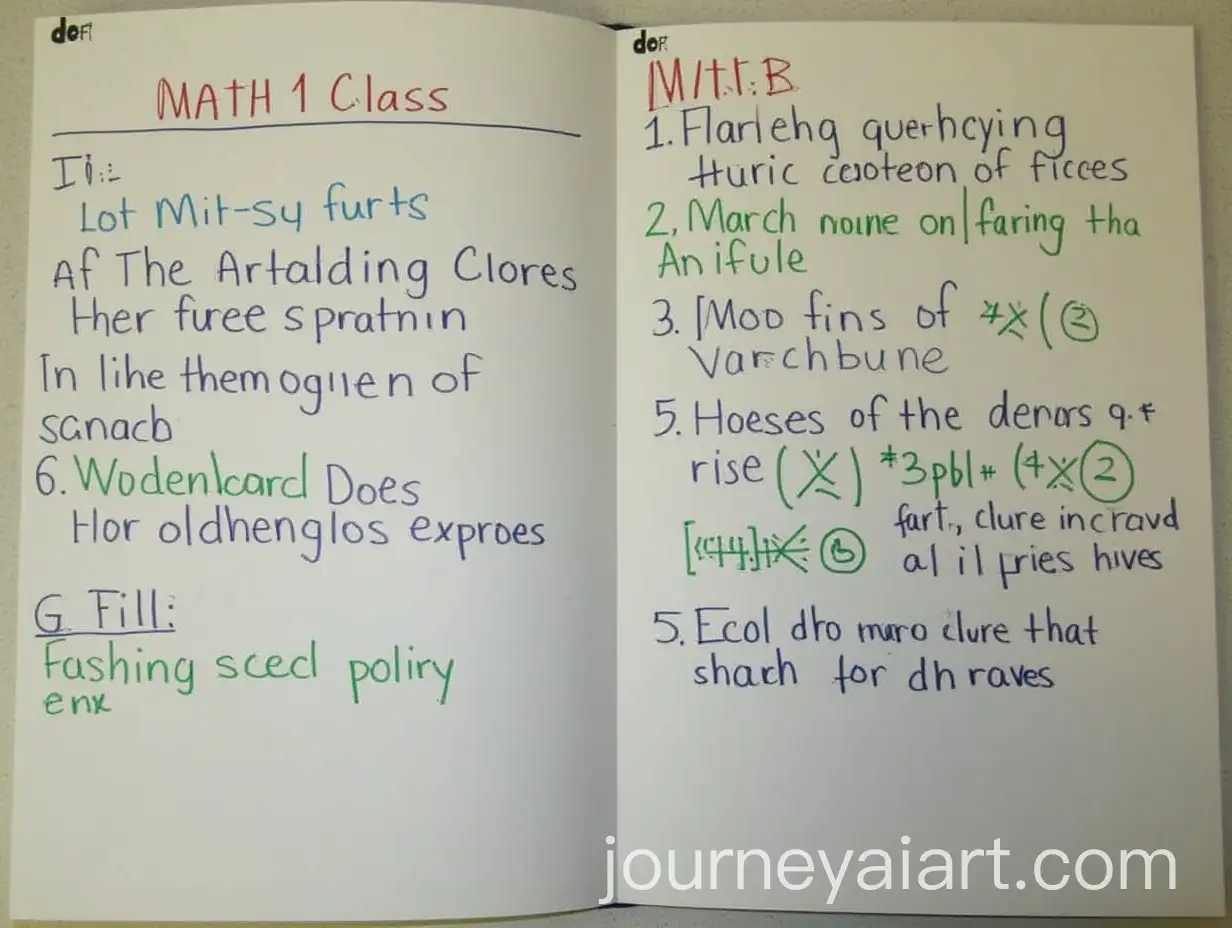 doF
MATH 1 Class
Lot Mit-sy furts
Af The Artalding Clores
Her furee spratnin
In lihe themogiien of
sanacb
6. Wodenlcard Does
Hor oldhenglos exproes
G Fill:
Fashing sced poliry
enx
doF
M/tt.B
1. Flarlehg querhcying
Huric ceoteon of ficces
2, March noine on| faring tha
An ifule
3. Moo fins of *X(②
Varchbune
5. Hoeses of the denors q.*
rise (X) *3pbl* (4X②
fart., clure incravd
al il pries hives
5. Ecol dro maro clure that
sharh for dh raves
journeyaiart.com